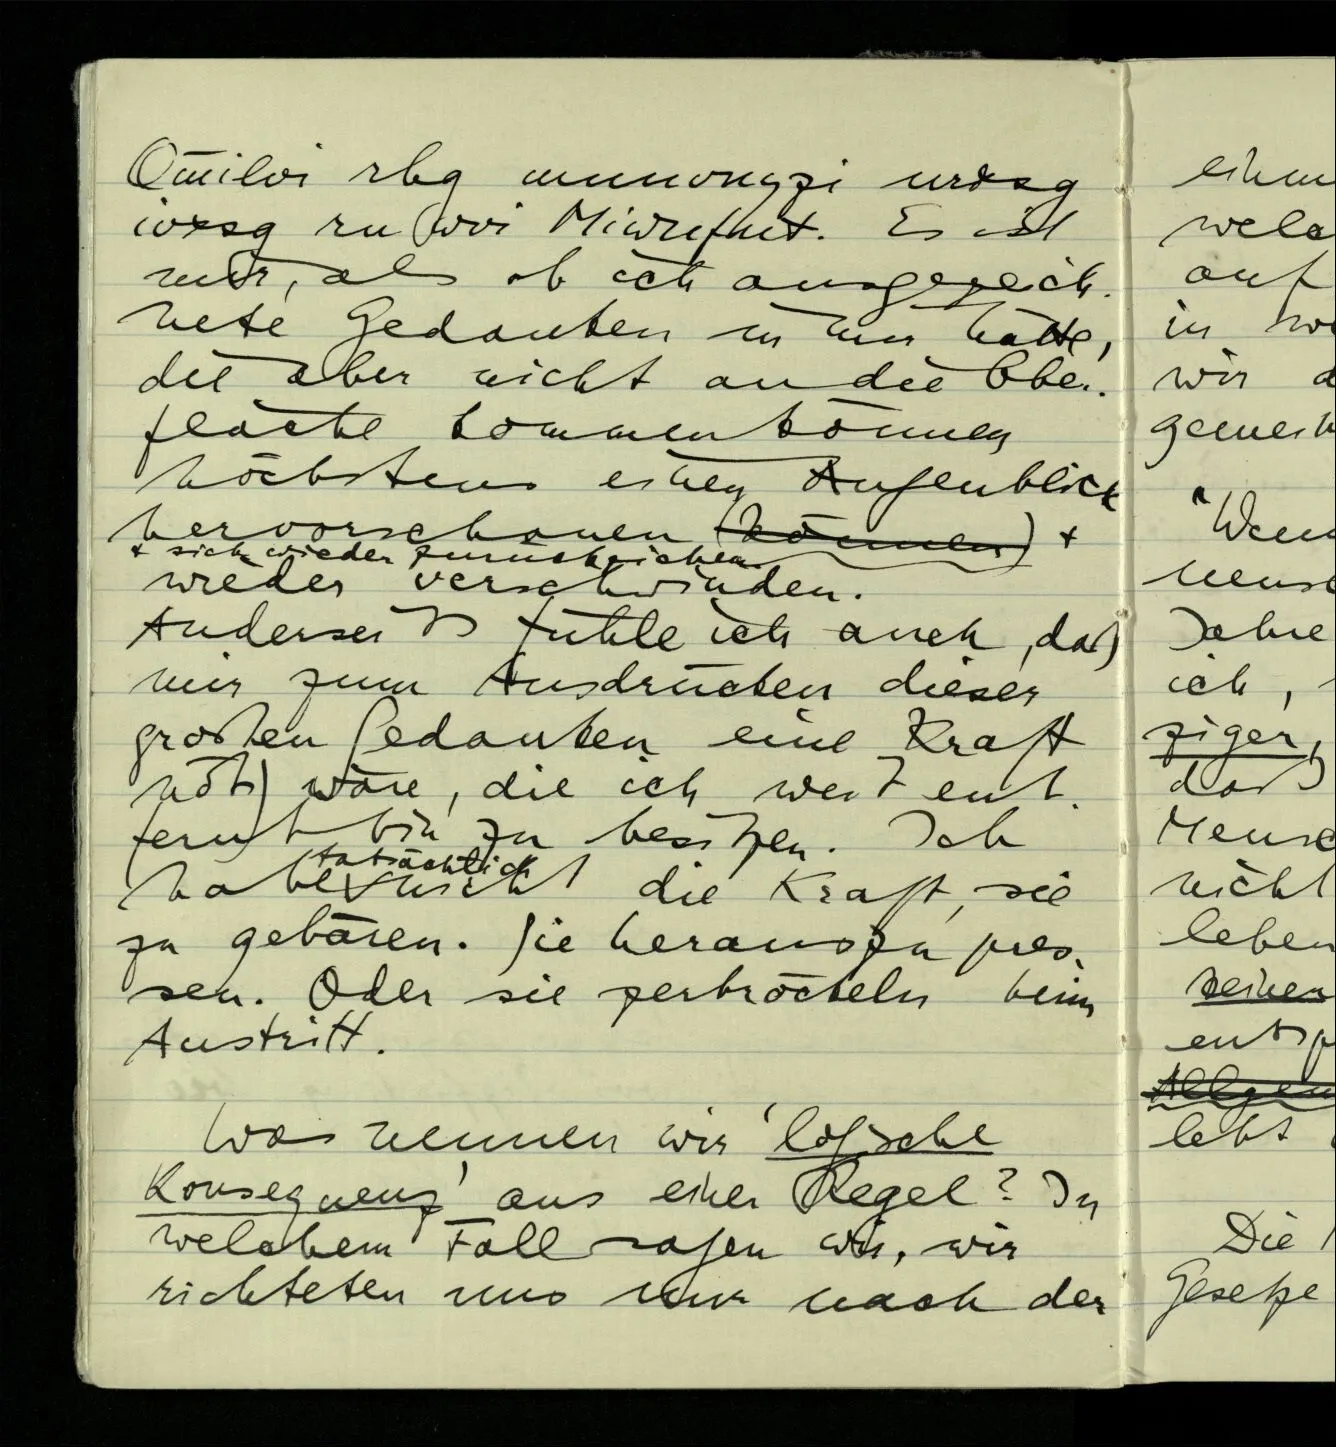 rhg nrxsg
wvi Es ist
mir, als ob ich ausgezeich-
nete Gedanken in mir hätte,
die aber nicht an die Ober-
fläche kommen können
höchstens einen Augenblick
hervorschauen (können) +
+ sich wieder zurückziehen
wieder verschwinden.
Anderseits fühle ich auch, daß
mir zum Ausdrücken dieser
großen Gedanken eine Kraft
nötig wäre, die ich weit ent-
fernt bin zu besitzen. Ich
tatsächlich
habe nicht die Kraft, sie
zu gebären. Sie herauszupres-
sen. Oder sie zerbröckeln beim
Austritt.
Was nennen wir 'logische
Konsequenz' aus einer Regel? In
welchem Fall sagen wir, wir
richteten uns nur nach der
auf
in
wir
"Wenn
Jahre
ich,
ziger,
daß
nicht
leben
seinen
lebt
Die
Gesetze